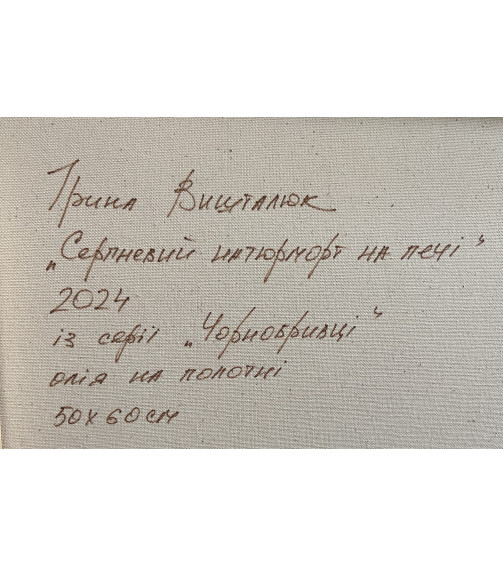 Ірина Вишталюк
„Серпневий натюрморт на печі"
2024
із серії „Чорнобривці"
олія на полотні
50х60см